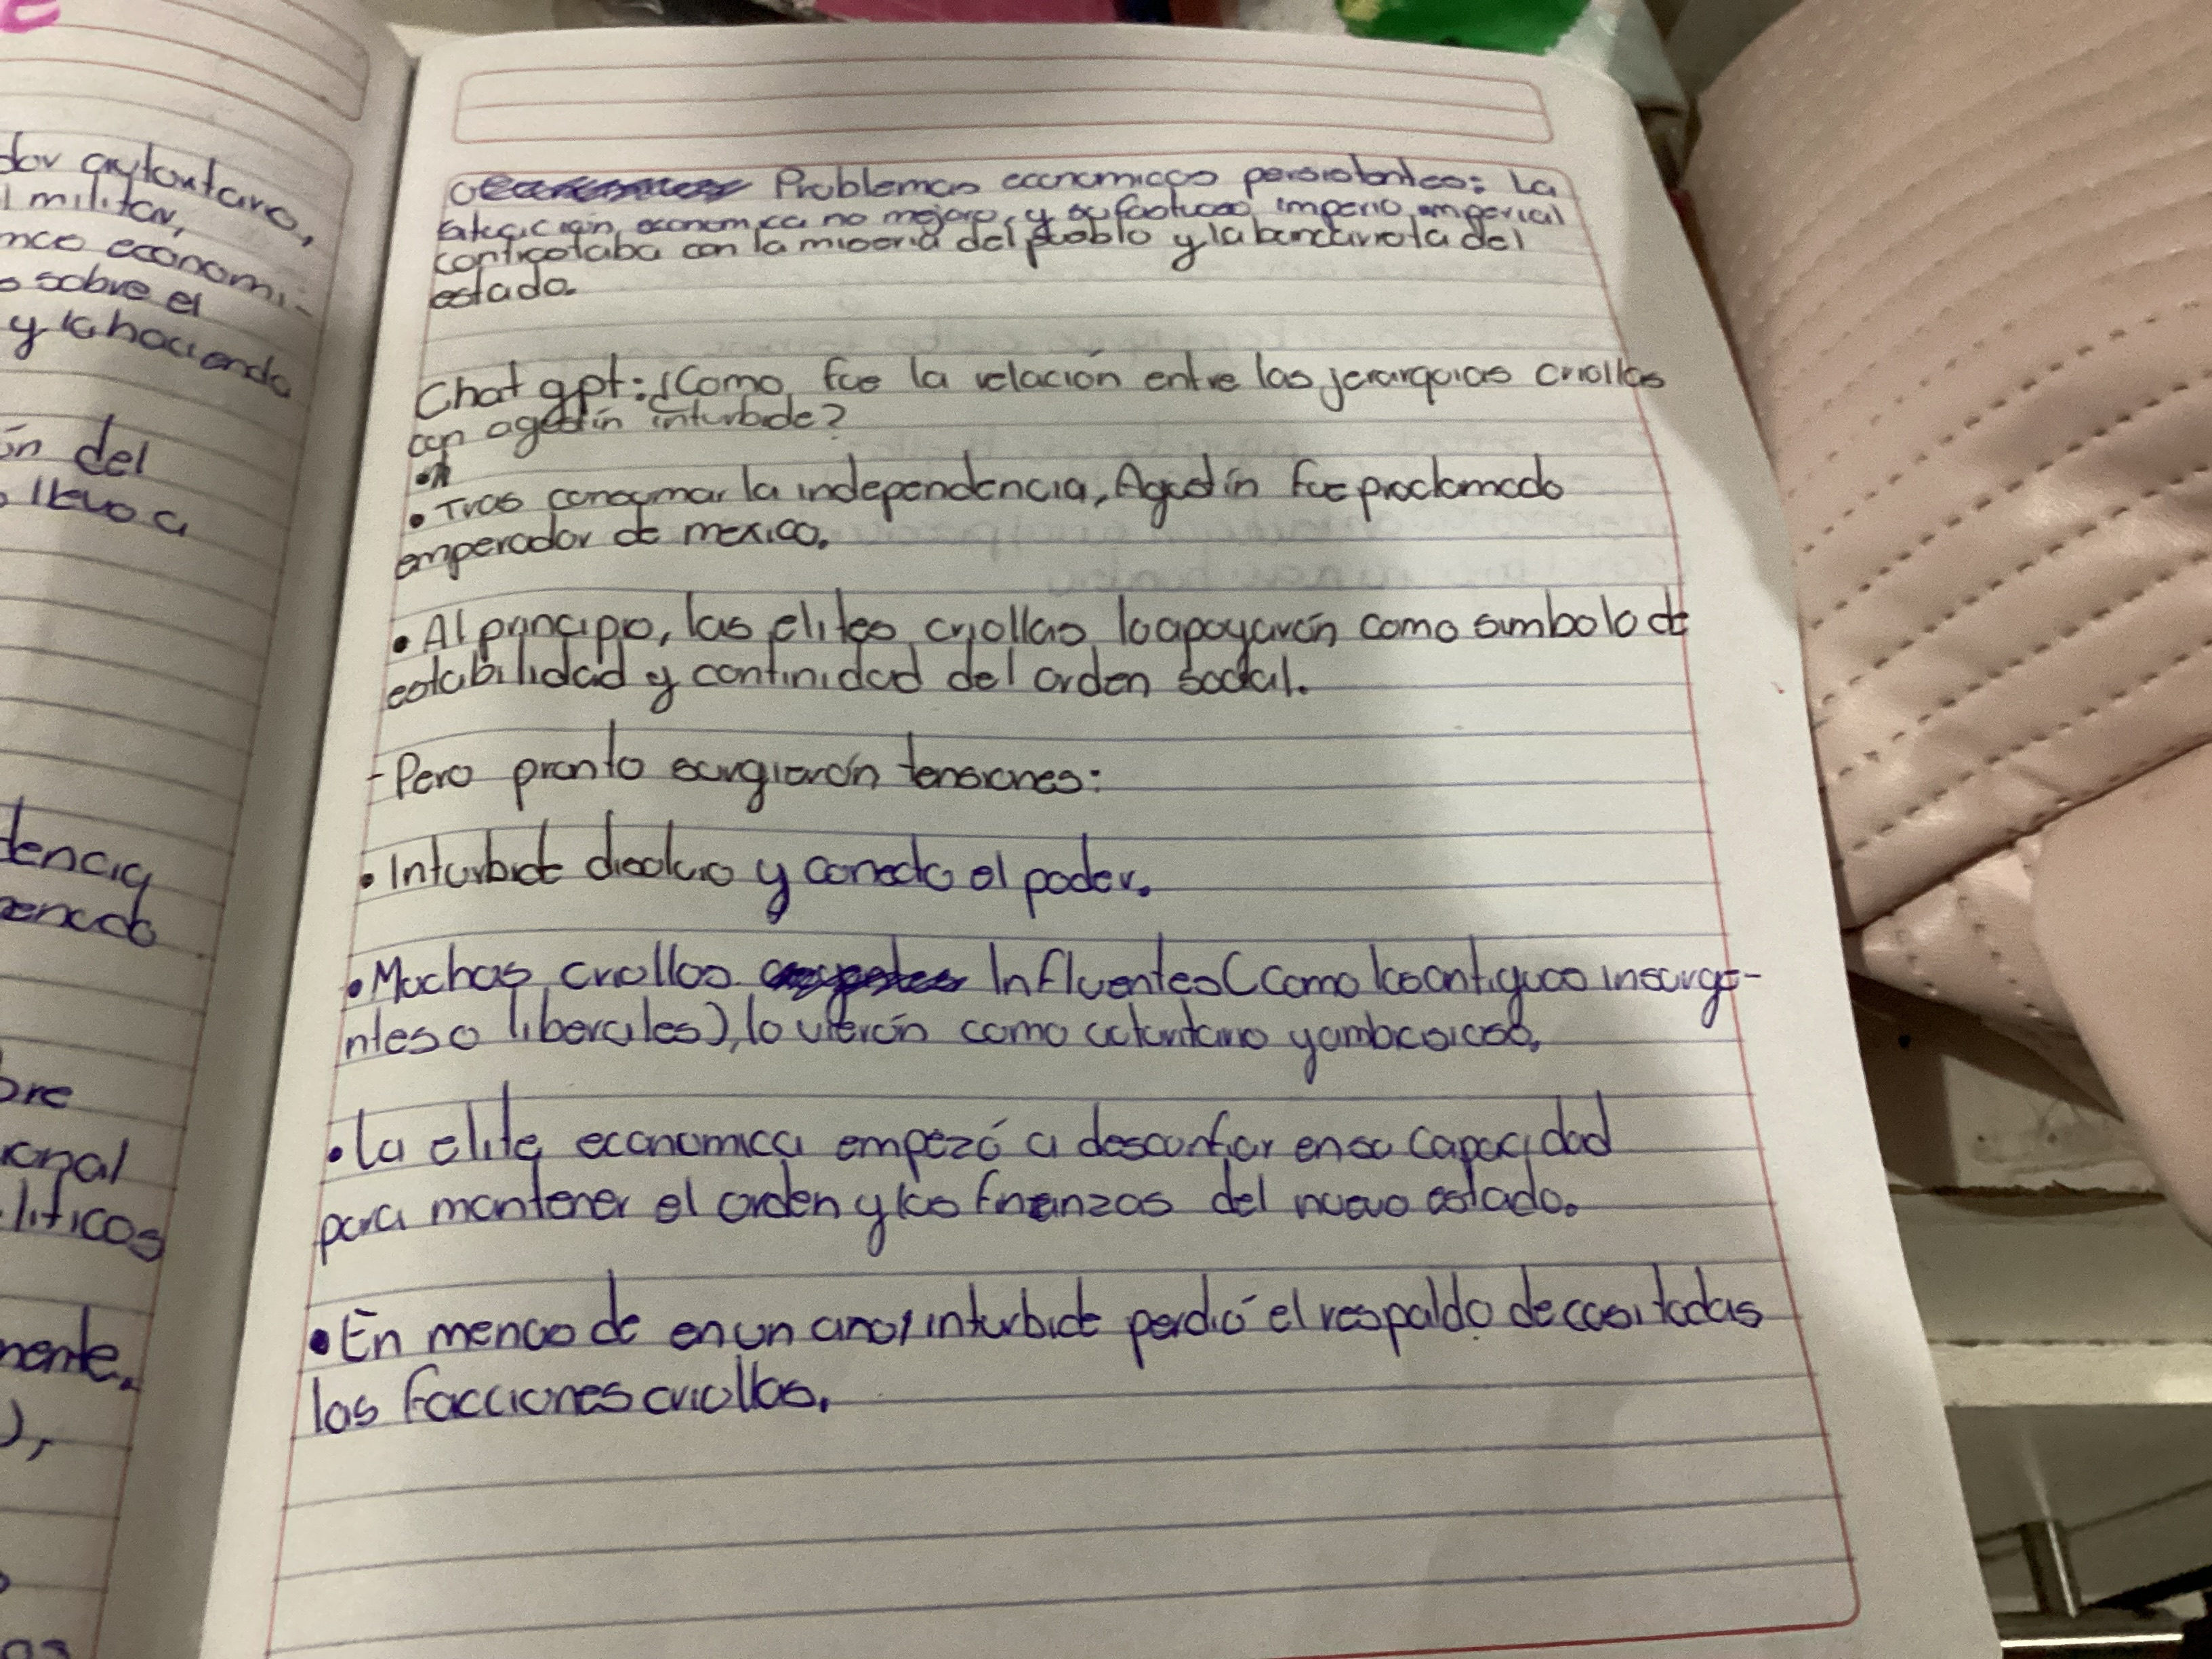 dor autoritario,
l militar,
nce economi-
o sobre el
y la hacienda
ón del
o llevo a
dencia
bre
onal
liticos
mente.
),
os
Problemas economicos persistentes: La
situación economica no mejoro, y su fastuoso imperio imperial
contrastaba con la miseria del pueblo y la bancarrota del
estado.
Chat gpt: ¿Como fue la relación entre las jerarquias criollas
con agustín inturbide?
• Tras consumar la independencia, Agustín fue proclamado
emperador de mexico.
• Al principio, las elites criollas lo apoyarón como simbolo de
estabilidad y continidad del orden social.
- Pero pronto surgierón tensiones:
• Inturbide disolvio y el poder.
• Muchos criollos Influentes (como los antiguos insurge-
ntes o liberales), lo vierón como autoritario y ambicioso.
• la elite economica empezó a desconfiar en su capacidad
para mantener el orden y las finanzas del nuevo estado.
• En menos de en un año, inturbide perdió el respaldo de casi todas
las facciones criollas.